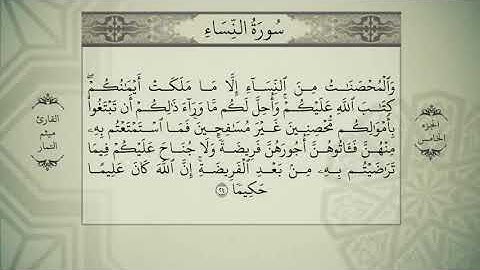 سُورَةُ النِّسَاءِ
وَالْمُحْصَنَاتُ مِنَ النِّسَآءِ إِلَّا مَا مَلَكَتْ أَيْمَانُكُمْ
كِتَابَ اللَّهِ عَلَيْكُمْ وَأُحِلَّ لَكُم مَّا وَرَآءَ ذَٰلِكُمْ أَن تَبْتَغُوا
بِأَمْوَالِكُم مُّحْصِنِينَ غَيْرَ مُسَافِحِينَ فَمَا اسْتَمْتَعْتُم بِهِ
مِنْهُنَّ فَآتُوهُنَّ أُجُورَهُنَّ فَرِيضَةً وَلَا جُنَاحَ عَلَيْكُمْ فِيمَا
تَرَاضَيْتُم بِهِ مِن بَعْدِ الْفَرِيضَةِ إِنَّ اللَّهَ كَانَ عَلِيمًا
حَكِيمًا ٢٤
الجزء
الخامس
القارئ
ميثم
التمار